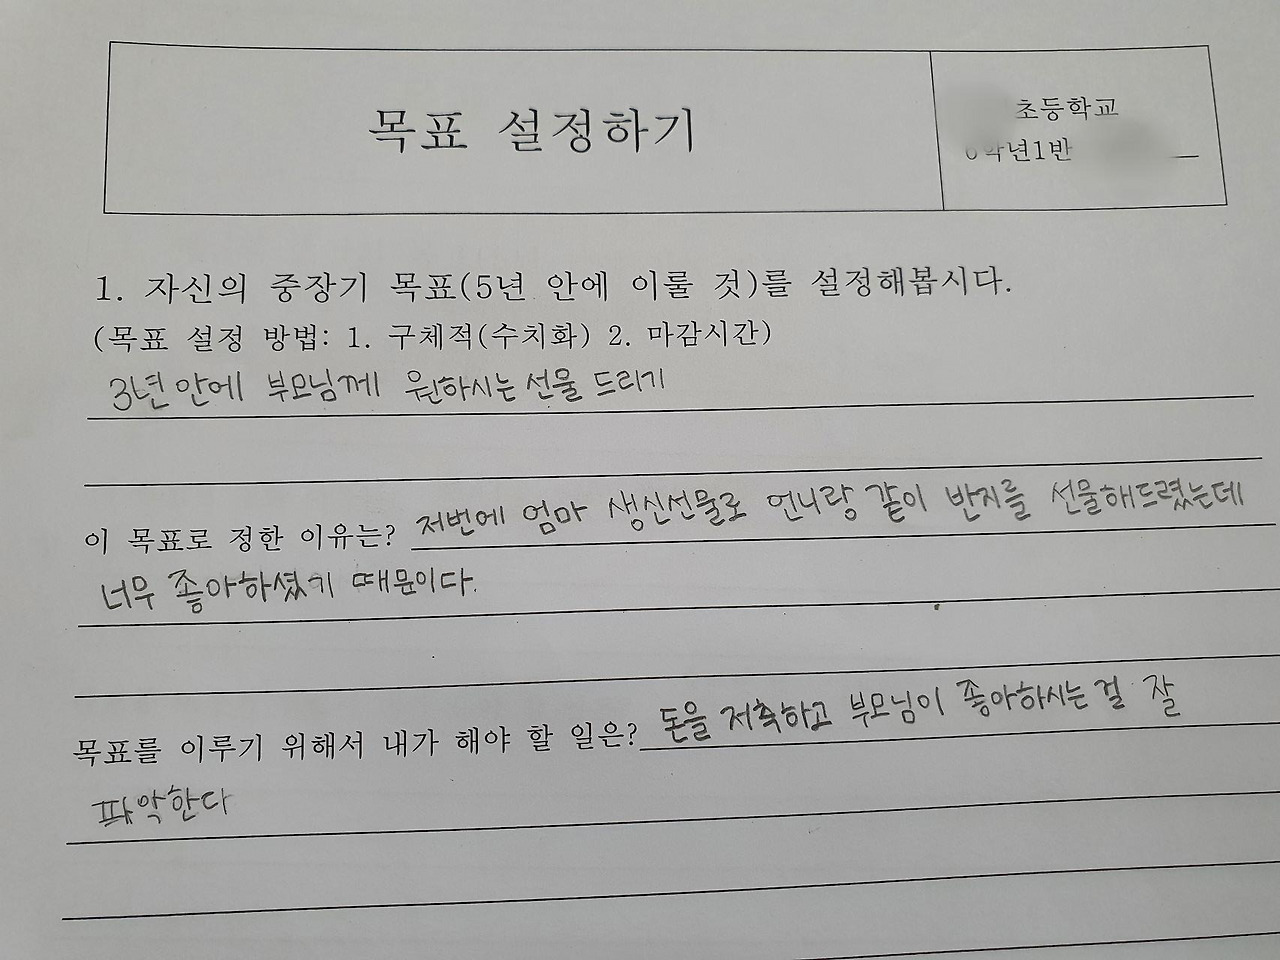 목표 설정하기
초등학교
6학년1반
1. 자신의 중장기 목표(5년 안에 이룰 것)를 설정해봅시다.
(목표 설정 방법: 1. 구체적(수치화) 2. 마감시간)
3년 안에 부모님께 원하시는 선물 드리기
이 목표로 정한 이유는? 저번에 엄마 생신선물로 언니랑 같이 반지를 선물해드렸는데
너무 좋아하셨기 때문이다.
목표를 이루기 위해서 내가 해야 할 일은? 돈을 저축하고 부모님이 좋아하시는 걸 잘
파악한다